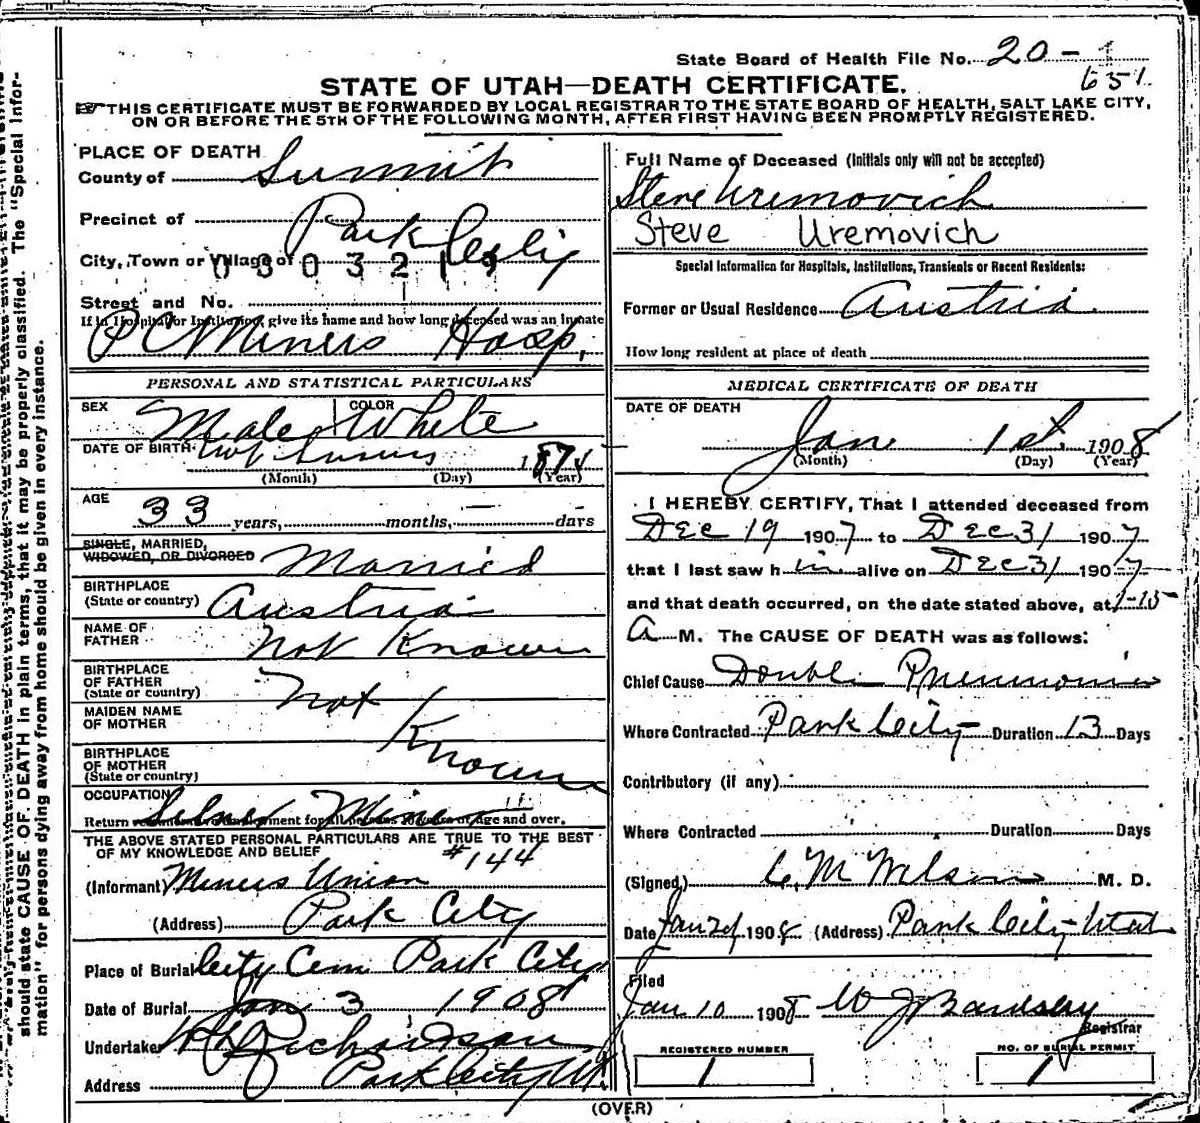 State Board of Health File No. 20-1
651
STATE OF UTAH—DEATH CERTIFICATE.
THIS CERTIFICATE MUST BE FORWARDED BY LOCAL REGISTRAR TO THE STATE BOARD OF HEALTH, SALT LAKE CITY,
ON OR BEFORE THE 5TH OF THE FOLLOWING MONTH, AFTER FIRST HAVING BEEN PROMPTLY REGISTERED.
PLACE OF DEATH
County of Summit
Precinct of Park City
City, Town or Village of
Street and No.
If in Hospital or Institution, give its name and how long deceased was an inmate
PC Miners Hosp.
PERSONAL AND STATISTICAL PARTICULARS
SEX Male COLOR White
DATE OF BIRTH 187
(Month) (Day) (Year)
AGE
33 years, months, — days
SINGLE, MARRIED,
WIDOWED, OR DIVORCED Married
BIRTHPLACE
(State or country) Austria
NAME OF
FATHER Not Known
BIRTHPLACE
OF FATHER
(State or country) Not
MAIDEN NAME
OF MOTHER Known
BIRTHPLACE
OF MOTHER
(State or country)
OCCUPATION Miner
THE ABOVE STATED PERSONAL PARTICULARS ARE TRUE TO THE BEST
OF MY KNOWLEDGE AND BELIEF #144
(Informant) Miners Union
(Address) Park City
Place of Burial City Cem Park City
Date of Burial Jan 3 1908
Undertaker Richardson
Address Park City Ut
Full Name of Deceased (Initials only will not be accepted)
Steve Uremovich
Steve Uremovich
Special Information for Hospitals, Institutions, Transients or Recent Residents:
Former or Usual Residence Austria
How long resident at place of death
MEDICAL CERTIFICATE OF DEATH
DATE OF DEATH
Jan 1st 1908
(Month) (Day) (Year)
I HEREBY CERTIFY, That I attended deceased from
Dec 19 1907 to Dec 31 1907
that I last saw him alive on Dec 31 1907
and that death occurred, on the date stated above, at 1-15
A M. The CAUSE OF DEATH was as follows:
Chief Cause Double Pneumonia
Where Contracted Park City Duration 13 Days
Contributory (if any)
Where Contracted Duration Days
(Signed) C. M Wilson M. D.
Date Jan 2d 1908 (Address) Park City Utah
Filed
Jan 10 1908 W J Bardsley
Registrar
REGISTERED NUMBER NO. OF BURIAL PERMIT
1 1
(OVER)
should state CAUSE OF DEATH in plain terms, that it may be properly classified. The "Special Infor-
mation" for persons dying away from home should be given in every instance.